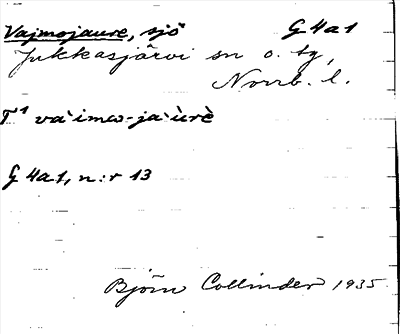 Vajmojaure, sjö G 4a1
Jukkasjärvi sn o. tg,
Norrb. l.
T¹ va`imω-ja`ùrè
G 4a1, n:r 13
Björn Collinder 1935